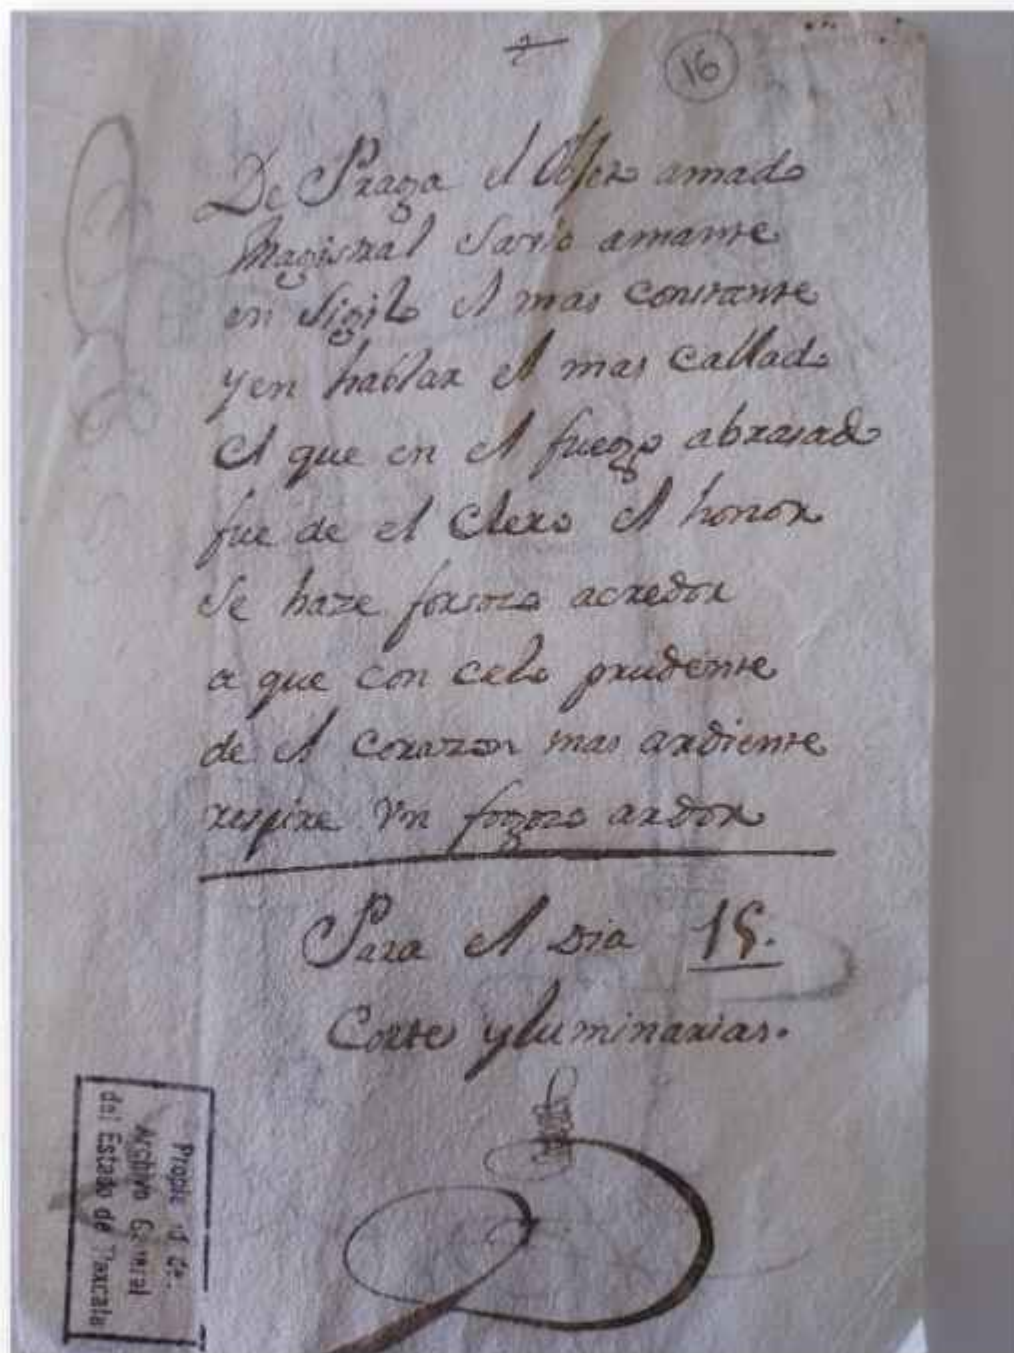 16
De Praga el Obser amado
Magistral Savio amante
en sigilo el mas constante
y en hablar el mas callado
el que en el fuego abrasado
fue de el Clero el honor
se haze forsozo acredor
a que con celo prudente
de el corazon mas ardiente
respire Vn fogozo ardor
Para el Dia 15.
Corte y luminarias.
Propiedad del
Archivo General
del Estado de Tlaxcala